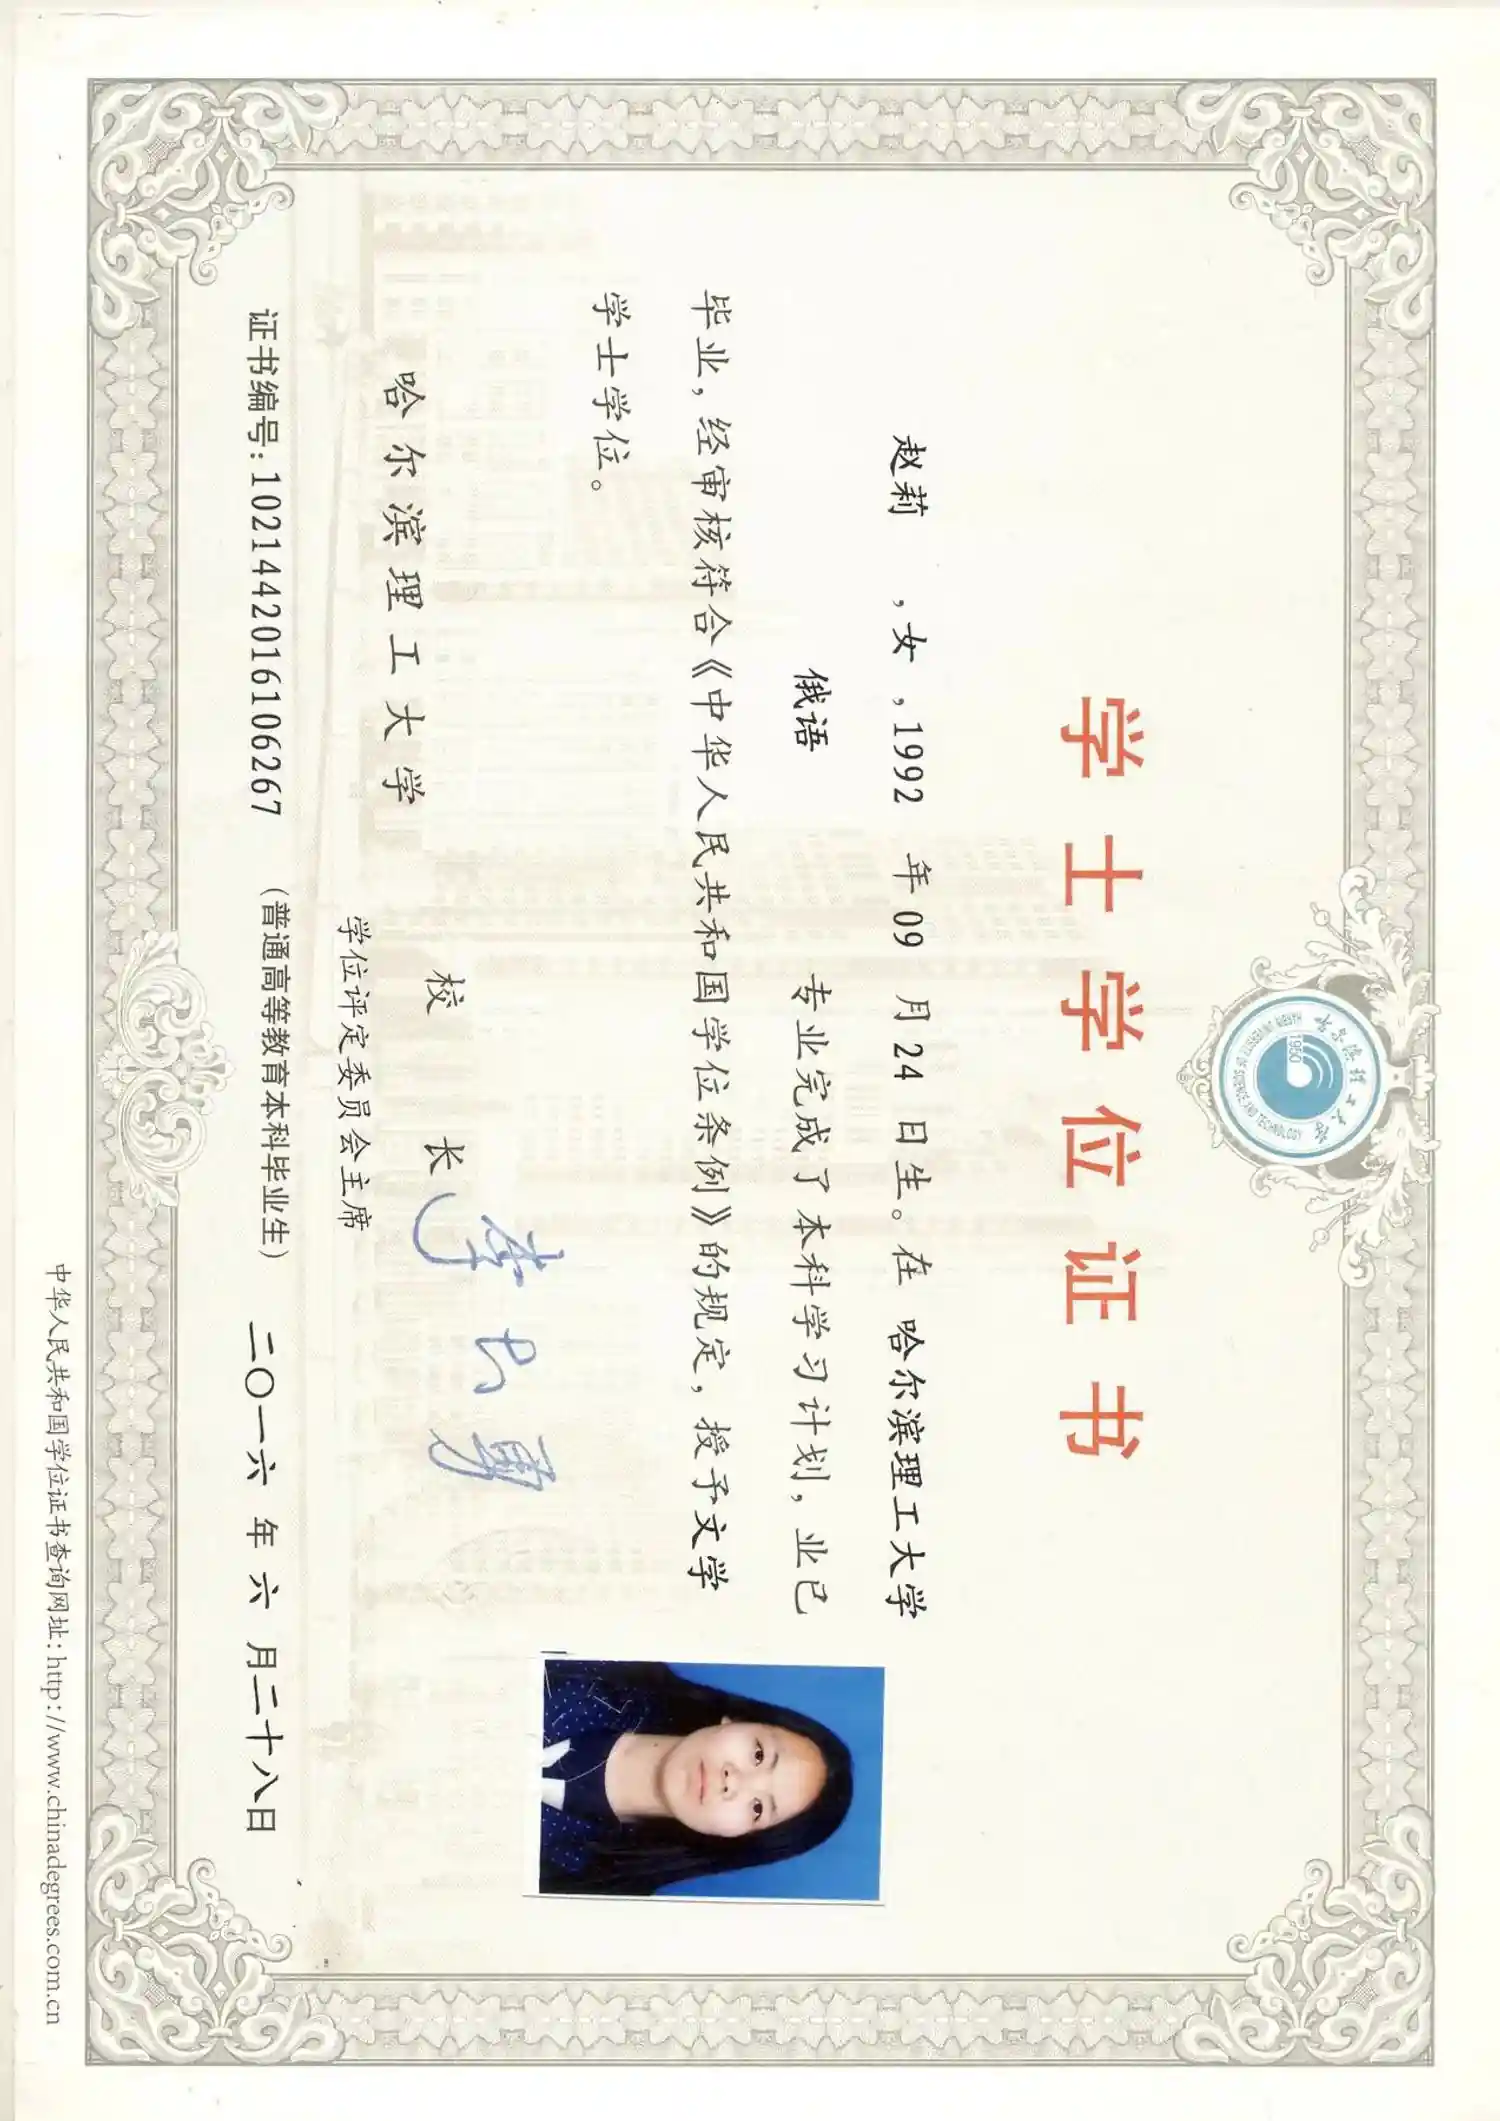 哈尔滨理工大学
HARBIN UNIVERSITY OF SCIENCE AND TECHNOLOGY
1950
学士学位证书
赵莉 ,女 ,1992 年 09 月 24 日生。在 哈尔滨理工大学
俄语 专业完成了本科学习计划，业已
毕业，经审核符合《中华人民共和国学位条例》的规定，授予文学
学士学位。
哈尔滨理工大学 校 长
学位评定委员会主席
证书编号:1021442016106267 (普通高等教育本科毕业生) 二〇一六 年 六 月二十八日
中华人民共和国学位证书查询网址:http://www.chinadegrees.com.cn